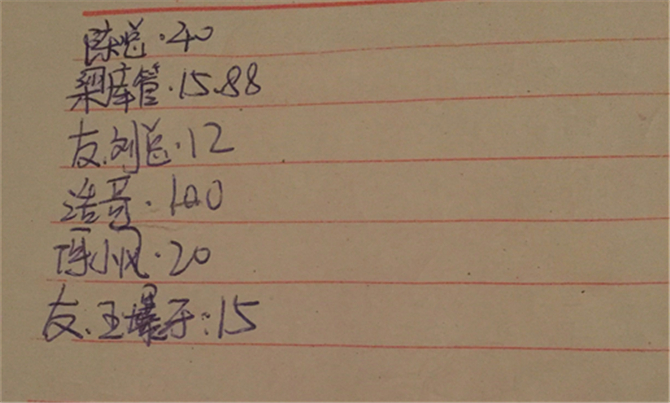 陈总·40
梁库管·15.88
友.刘总·12
浩哥·100
陈小风·20
友.王爆牙:15